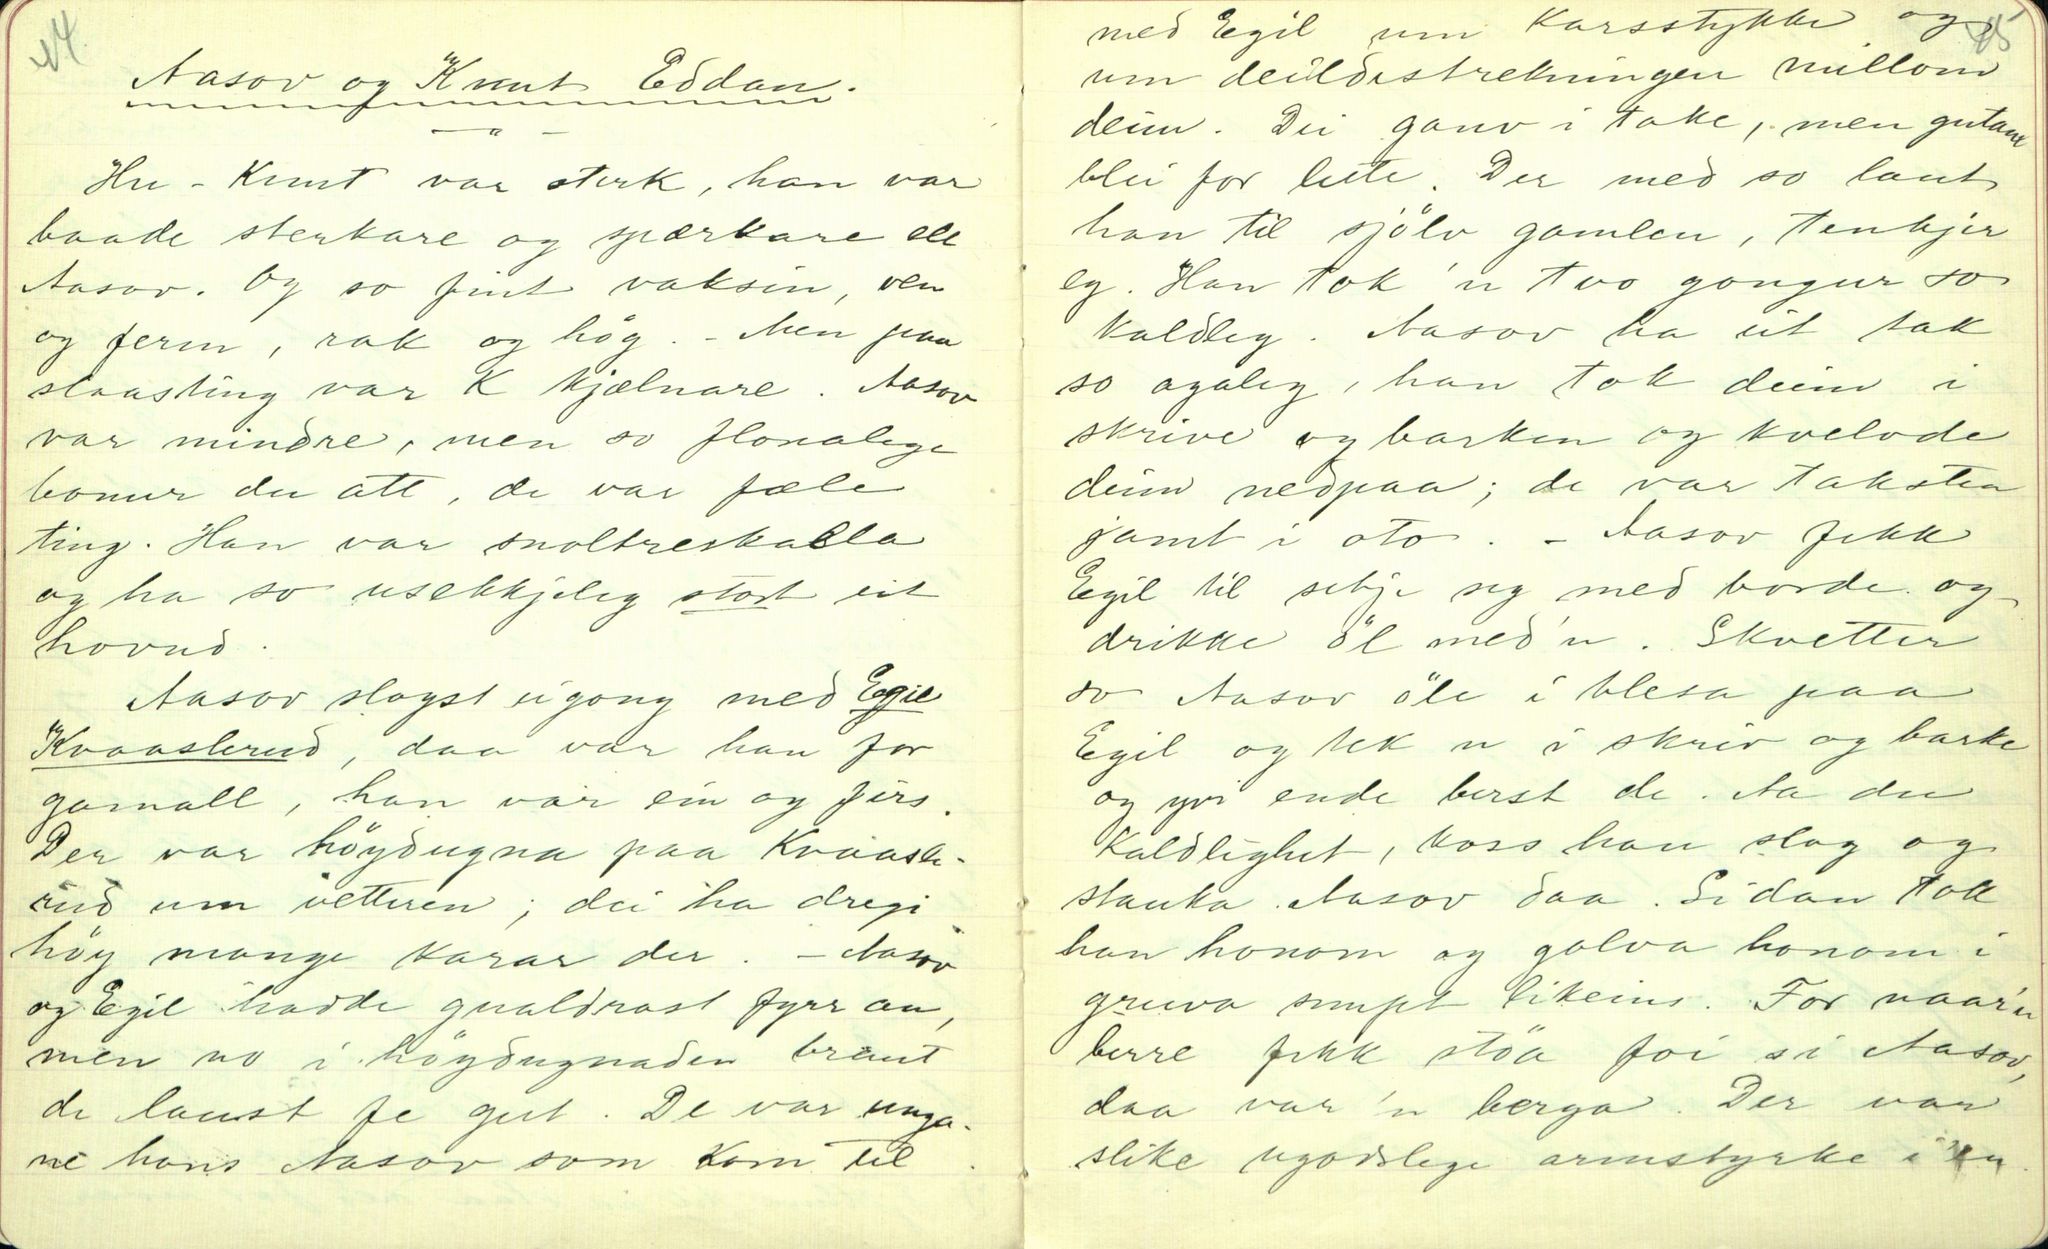 14.
Aasov og Knut Eddan.
— " —
Hu - Knut var sterk, han var
baade sterkare og spærkare ell
Aasov. Og so fint vaksin, ven
og ferm, rak og hög. - Men paa
slaasting var K kjælnare. Aasov
var mindre, men so flonalege
bonur du att, de var fæle
ting. Han var snoltreskalla
og ha so usekkjeleg stort eit
hovud.
Aasov slogst eigong med Egil
Kvaaslerud, daa var han for
gamall, han var ein og firs.
Der var höydugna paa Kvaasle-
rud um vetteren; dei ha dregi
höy mange karar der. - Aasov
og Egil hadde gnaldrast fyrr au,
men no i höydugnaden braut
de laust fe gut. De var unga-
ne hans Aasov som kom til
15
med Egil um Karsstykke og
um deildestrekningen millom
deim. Dei gauv i take, men gutane
blei for lite. Der med so laut
han til sjölv gamlen, tenkjer
eg. Han tok 'n tvo gongur so
kaldleg. Aasov ha eit tak
so agaleg, han tok deim i
skrive og barken og kvelvde
deim nedpaa; de var taksta
jamt i oto. - Aasov fekk
Egil til setje seg med borde og
drikke öl med'n. Skvetter
so Aasov öle i blesa paa
Egil og tek n i skriv og barke
og yvi ende berst de. Aa du
kaldlighet, koss han slog og
stauka Aasov daa. Sidan tok
han honom og golva honom i
gruva snupt likeins. For naar'n
berre fekk stöa foi si Aasov,
daa var 'n berga. Der var
slike ugodslege armstyrke i 'n.